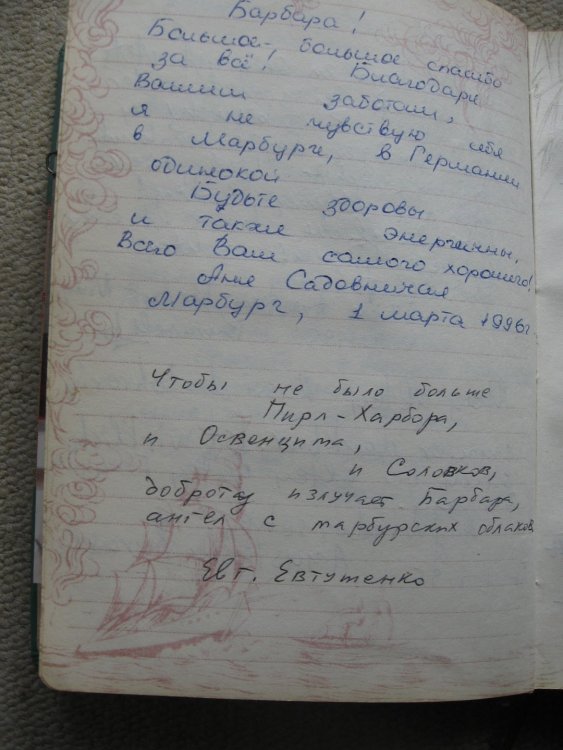 Барбара!
Большое-большое спасибо
за всё! Благодаря
Вашим заботам,
я не чувствую себя
в Марбурге, в Германии
одинокой
Будьте здоровы
и также энергичны.
Всего Вам самого хорошего!
Аня Садовничая
Марбург, 1 марта 1996г
Чтобы не было больше
Пирл-Харбора,
и Освенцима,
и Соловков,
доброту излучает Барбара,
ангел с марбурских облаков
Евг. Евтушенко